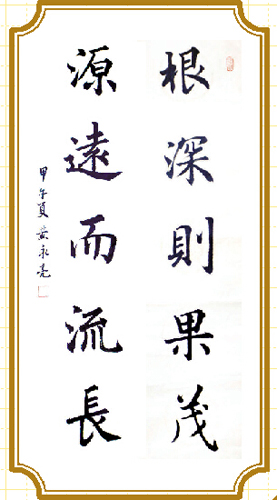 根深則果茂
源遠而流長
甲午夏黃永亮